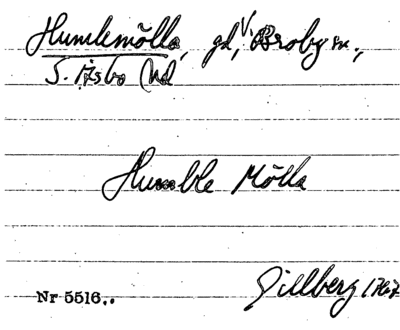 Humlemölla, gd, V. Broby sn.,
S. Åsbo hd
Humble Mölla
Gillberg 1767
Nr 5516.